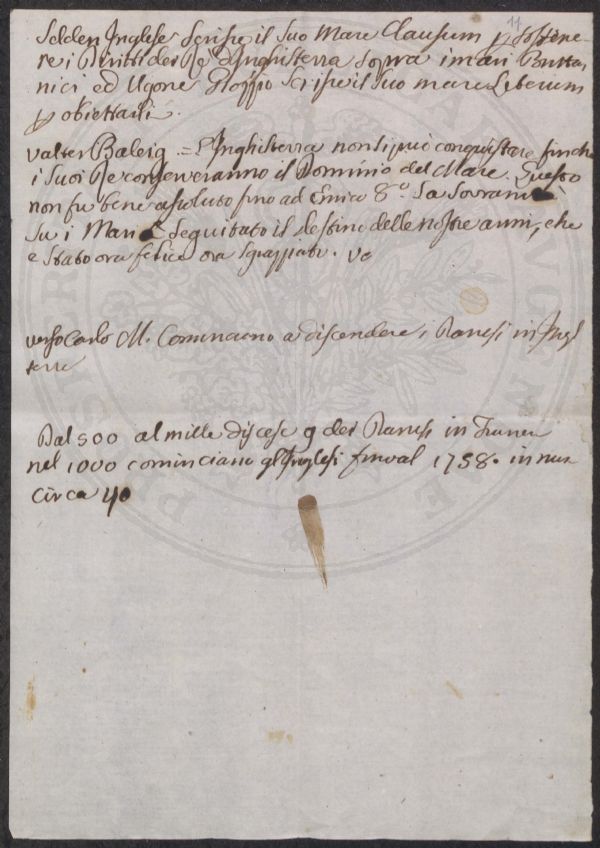 11
Selden Inglese Scrisse il Suo Mare Clausum p sostene-
re i Diritti dei Re d'Inghilterra sopra i mari Britta,
nici ed Ugone Grozio Scrisse il suo mare Liberum
p obiettarli.
Valter Raleig = L'Inghilterra non si può conquistare finche
i Suoi Re conserveranno il Dominio del Mare. Questo
non fu bene assoluto fino ad Enrico 8.º La Sovranità
Su i Mari è Seguitato il destino delle nostre armi, che
e stato ora felice ora sgraziato.
verso Carlo M. Cominciano a discendere i Danesi in Ingl
terre
Dal 500 al mille discese 9 dei Danesi in
nel 1000 cominciano gl'Inglesi fino al 1758. in num
circa 40